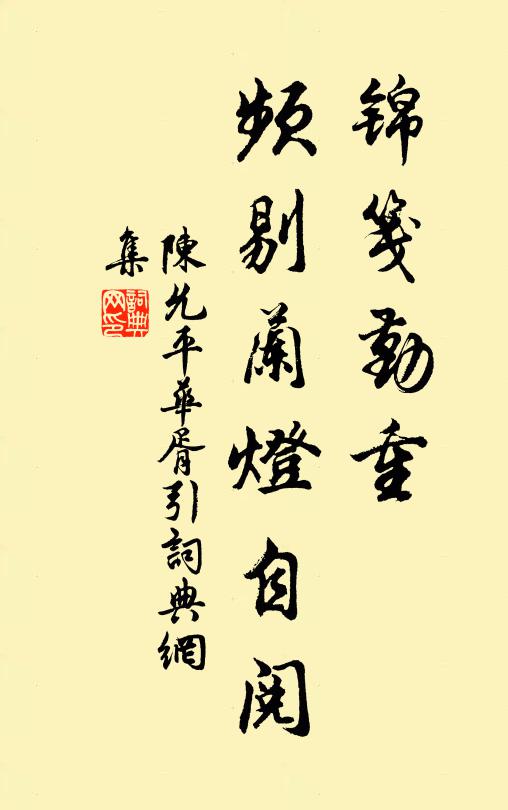 锦笺勤重
频剔蘭燈自閱
陳允平華胥引詞典網
集
詞典网印